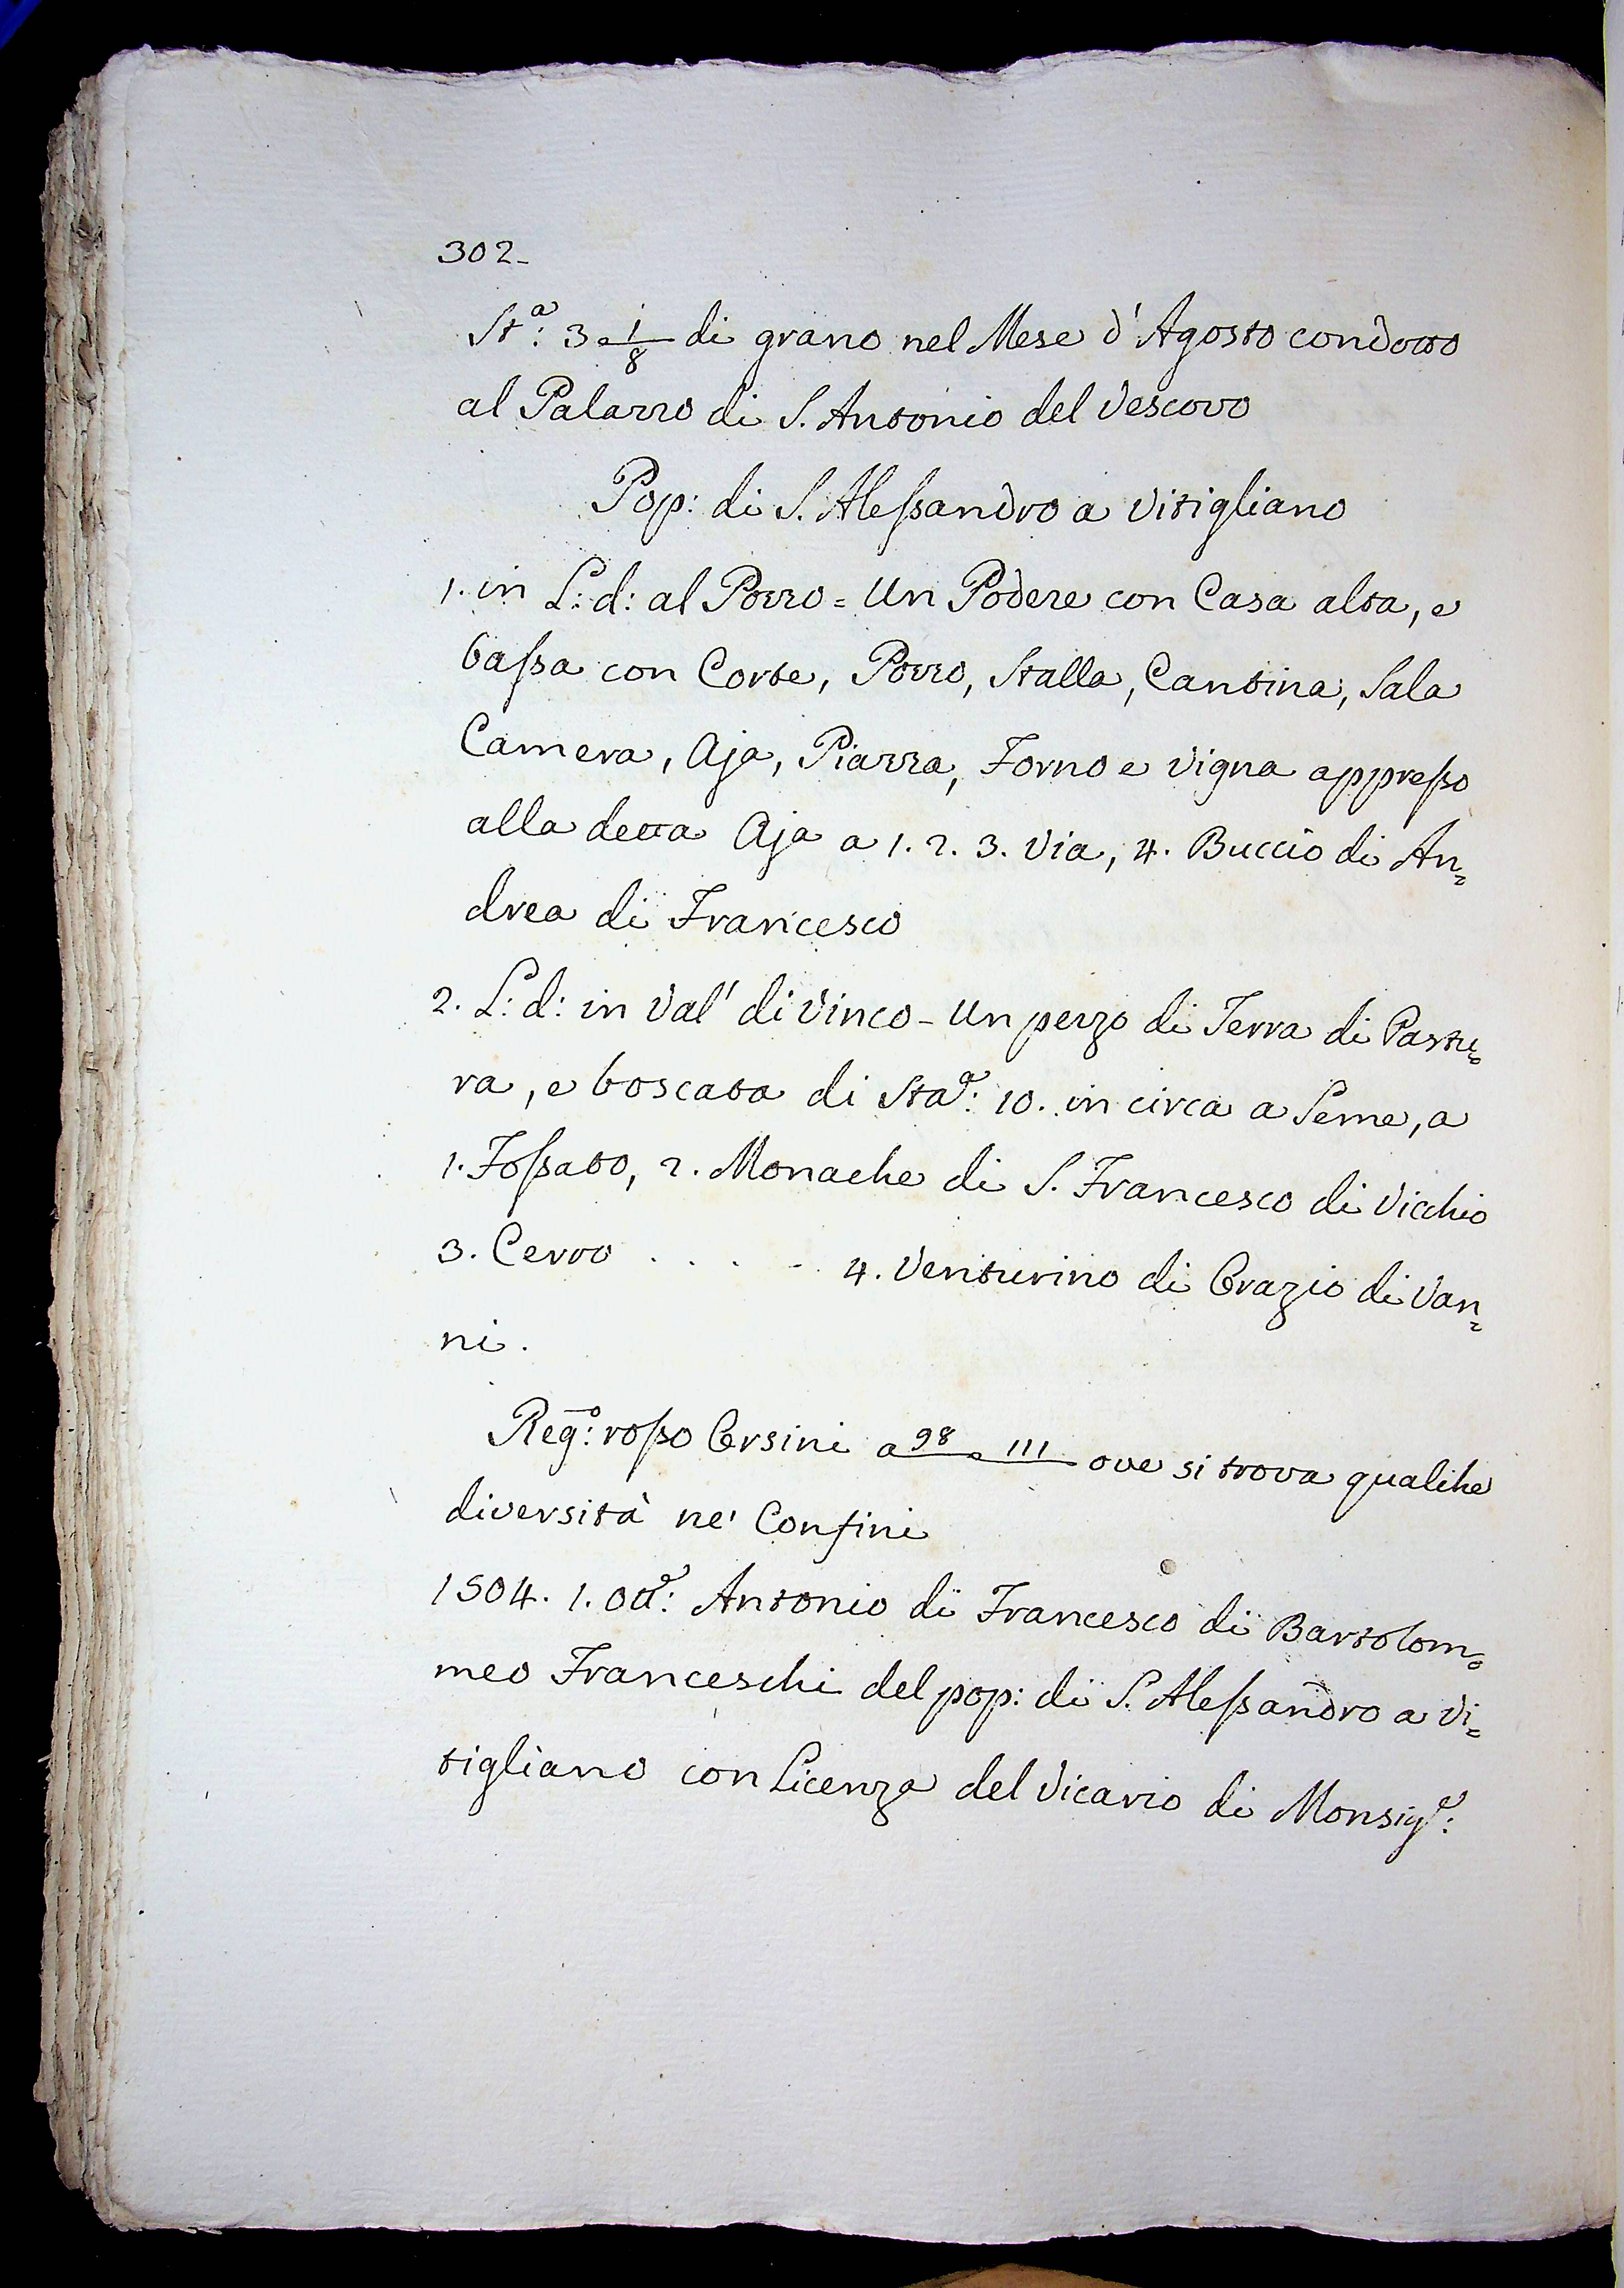 302.
St.ª: 3 1/8 di grano nel Mese d'Agosto condotto
al Palazzo di S. Antonio del Vescovo
Pop: di S. Alessandro a Vitigliano
1. in L: d: al Pozzo = Un Podere con Casa alta, e
bassa con Corte, Pozzo, Stalla, Cantina, Sala
Camera, Aja, Piazza, Forno e Vigna appresso
alla detta Aja a 1. 2. 3. Via, 4. Buccio di An=
drea di Francesco
2. L: d: in Val' di Vinco - Un pezzo di Terra di Pastu=
ra, e boscata di Staª: 10. in circa a Seme, a
1. Fossato, 2. Monache di S. Francesco di Vicchio
3. Cerro . . . . 4. Venturino di Orazio di Van=
ni.
Reg:º rosso Orsini a 98 e 111 ove si trova qualche
diversità ne' Confini
1504. 1. Ott.e: Antonio di Francesco di Bartolom=
meo Franceschi del pop: di S. Alessandro a Vi=
tigliano con Licenza del Vicario di Monsig.e: